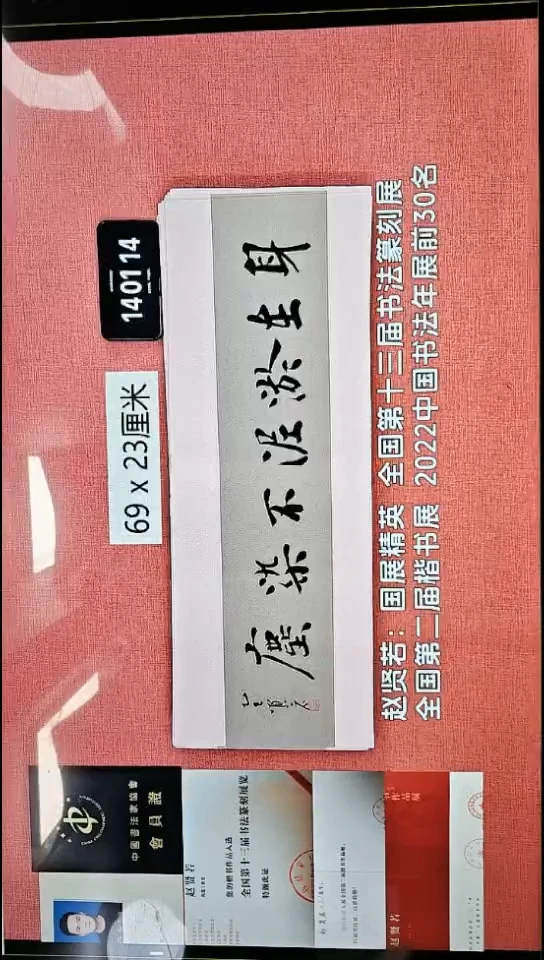 140114
69 x 23厘米
身在淤泥不染塵
赵贤若：国展精英 全国第十三届书法篆刻展
全国第二届楷书展 2022中国书法年展前30名
中國書法家協會
會員證
赵贤若
您的楷书作品入选
全国第十三届书法篆刻展览
特颁此证
赵贤若